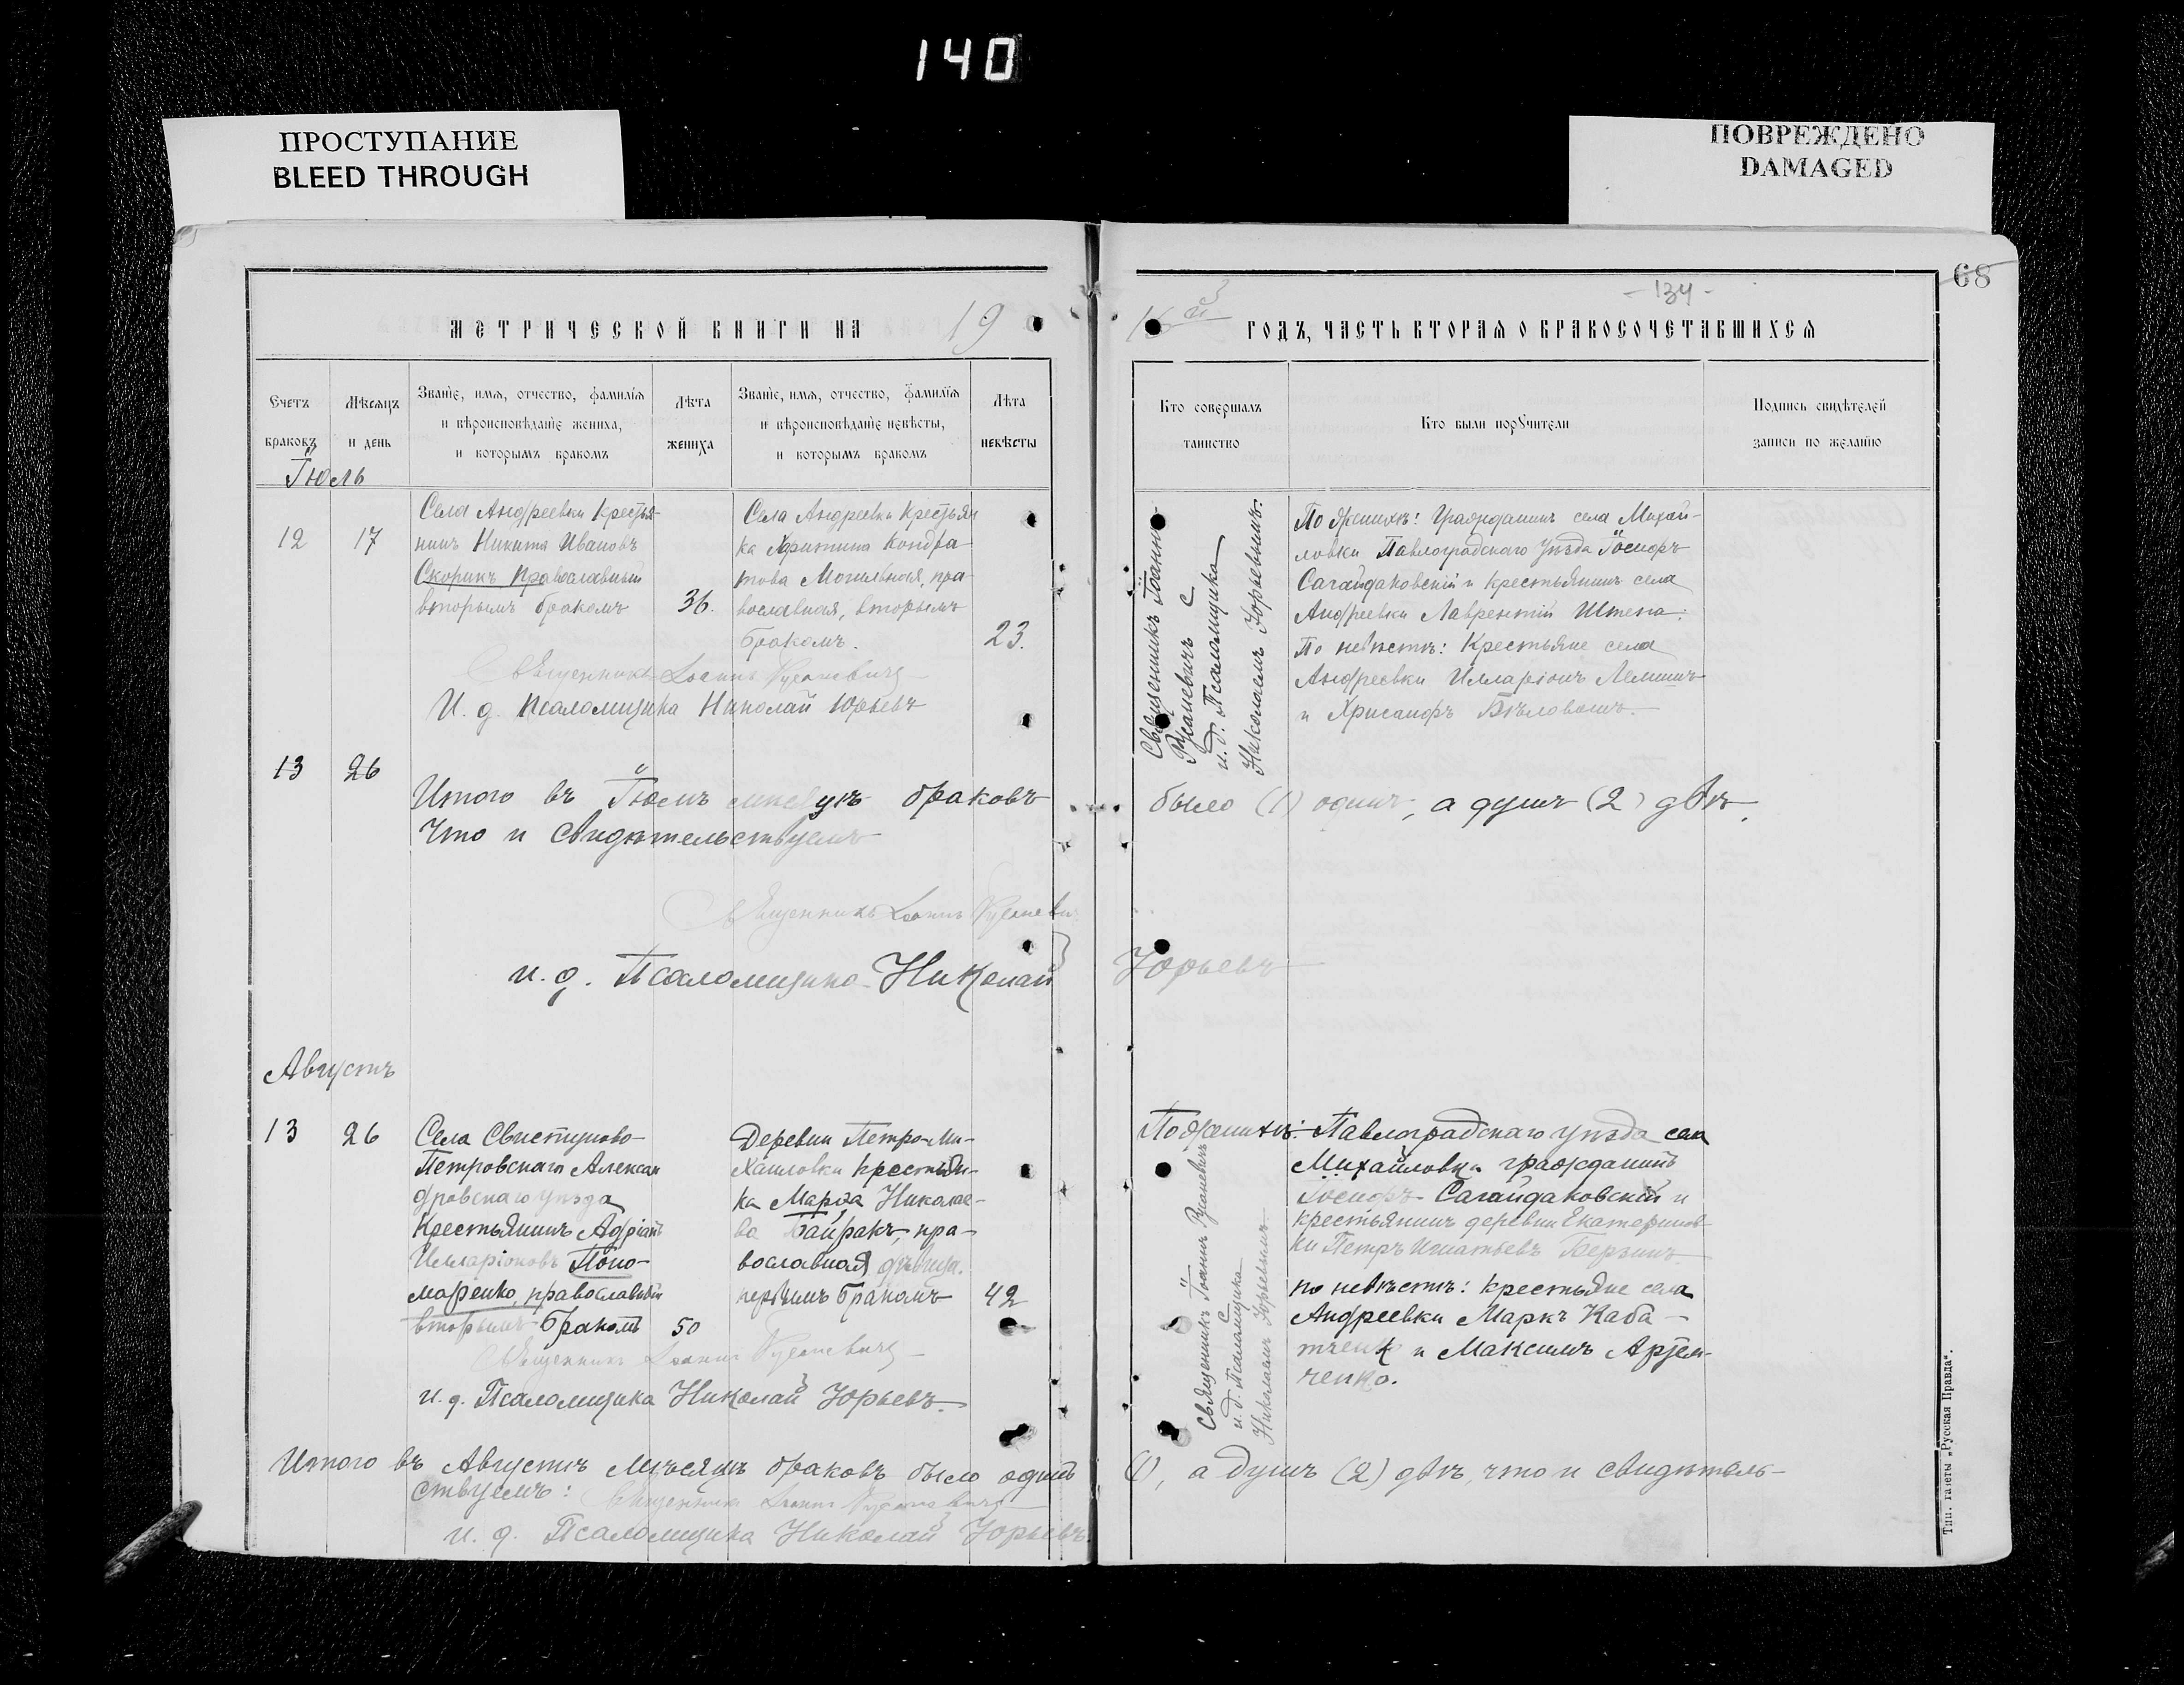 140
ПРОСТУПАНИЕ
BLEED THROUGH
ПОВРЕЖДЕНО
DAMAGED
68
- 134 -
МЕТРИЧЕСКОЙ КНИГИ НА 19
16й ГОДЪ, ЧАСТЬ ВТОРАЯ О БРАКОСОЧЕТАВШИХСЯ
Счетъ браковъ
Мѣсяцъ и день
Званіе, имя, отчество, фамилія и вѣроисповѣданіе жениха, и которымъ бракомъ
Лѣта жениха
Званіе, имя, отчество, фамилія и вѣроисповѣданіе невѣсты, и которымъ бракомъ
Лѣта невѣсты
Кто совершалъ таинство
Кто были поручители
Подпись свидѣтелей записи по желанію
Іюль
12
17
Села Андреевки Крестья-
нинъ Никита Ивановъ
Скорикъ православный
вторымъ бракомъ
36.
Села Андреевки Крестьян
ка Христина Кондра-
това Могильная, пра-
вославная, вторымъ
бракомъ.
23.
Священникъ Іоаннъ
Русаневичъ с
и. д. Псаломщика
Николаемъ Юрьевымъ.
По женихѣ: Гражданинъ села Михай-
ловки Павлоградскаго уѣзда Іосифъ
Сагайдаковскій и крестьянинъ села
Андреевки Лаврентій Штепа:
По невѣстѣ: Крестьяне села
Андреевки Илларіонъ Лемишъ
и Хрисанфъ Бѣловолъ.
Священникъ Іоаннъ Русаневичъ
И. д. Псаломщика Николай Юрьевъ
13
26
Итого въ Іюлѣ мѣсяцѣ браковъ было (1) одинъ, а душъ (2) двѣ,
Что и свидѣтельствуемъ
Священникъ Іоаннъ Русаневичъ
и. д. Псаломщика Николай Юрьевъ
Августъ
13
26
Села Свистуново-
Петровскаго Алексан
дровскаго уѣзда
Крестьянинъ Адріанъ
Илларіоновъ Поно-
маренко, православный
вторымъ бракомъ
50
Деревни Петро-Ми-
хайловки крестьян-
ка Марѳа Николае-
ва Байракъ, пра-
вославная дѣвица.
первымъ бракомъ
42
Священникъ Іоаннъ Русаневичъ
и. д. Псаломщика с
Николаемъ Юрьевымъ
По женихѣ: Павлоградскаго уѣзда села
Михайловки гражданинъ
Іосифъ Сагайдаковскій и
крестьянинъ деревни Екатеринов-
ки Петръ Игнатьевъ
по невѣстѣ: крестьяне села
Андреевки Маркъ Каба-
и Максимъ Артем-
ченко.
Священникъ Іоаннъ Русаневичъ
и. д. Псаломщика Николай Юрьевъ.
Итого въ Августѣ мѣсяцѣ браковъ было одинъ (1), а душъ (2) двѣ, что и свидѣтель-
ствуемъ: Священникъ Іоаннъ Русаневичъ
и. д. Псаломщика Николай Юрьевъ.
Тип. газеты „Русская Правда".